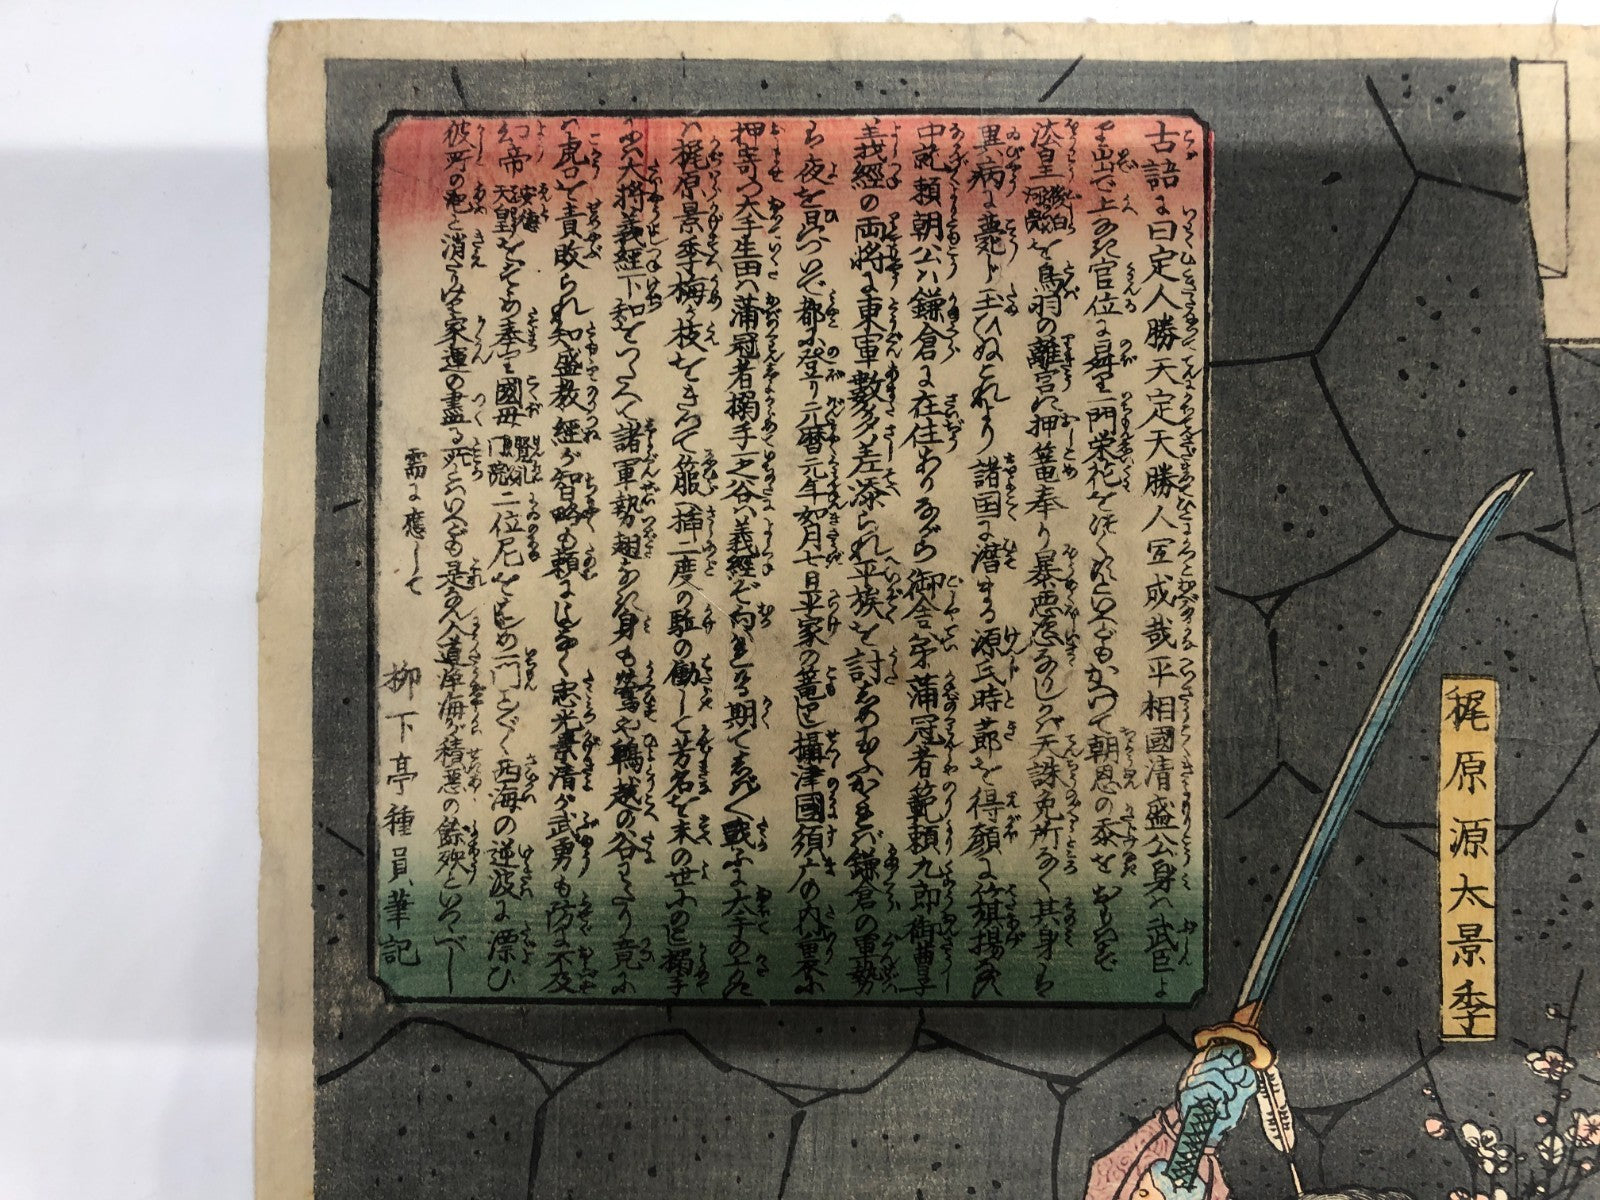 古語に曰定人勝天定天勝人宜成哉平相國清盛公身ハ武臣より
出で上なき官位に昇り一門栄花を尽くすといへどもかつて朝恩の忝をおもはで
法皇後白河院を鳥羽の離宮に押篭奉り暴悪悪なりしが天誅免所なく其身も
異病に薨じ玉ひぬこれより諸国に潜まる源氏時節を得顔に籏揚なす
中就頼朝公ハ鎌倉に在住ありながら御舎弟蒲冠者範頼九郎御曹子
義経の両将に東軍數多差添られ平族を討しめ玉ふかまれバ鎌倉の軍勢
夜を日についで都に登り元暦元年如月七日平家の篭る攝津國須广の内裏に
押寄つ大手生田ハ蒲冠者搦手一之谷ハ義經ぞ向はる期て戦ふ大手の
ハ梶原景季梅が枝をきつて箙に插二度の駈の働して芳名を末の世に搦手
にハ大将義経下知をつたへて諸軍勢翅なき身も鵯越の谷
虎口を責敗られ知盛教經が智略も頼にならず忠光景清が武勇も防に不及
帝安徳天皇をはじめ奉り國母建礼門院二位尼をはじめ一門西海の逆波に漂ひ
彼所の泡と消たり平家運の盡る所といへども是入道淨海が積悪の餘殃といつべし
需に應して
柳下亭種員筆記
梶原源太景季